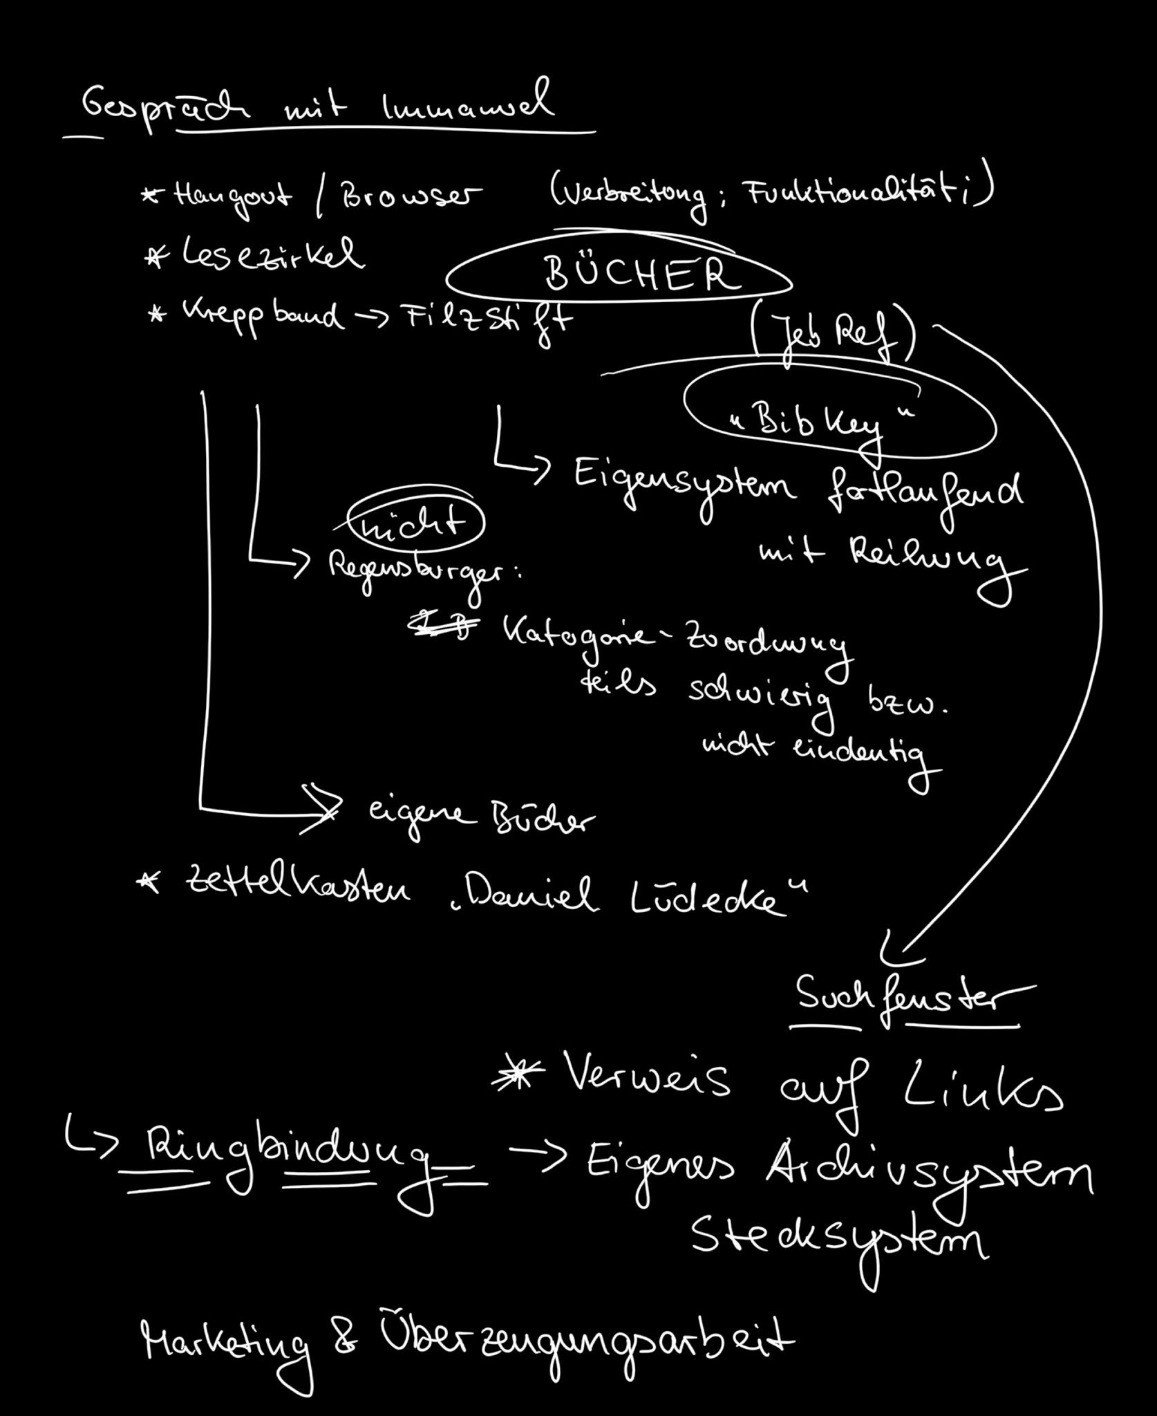 Gespräch mit Immanuel
* Hangout / Browser (Verbreitung; Funktionalität;)
* Lesezirkel
BÜCHER
* Kreppband → Filzstift
(Jeb Ref)
„BibKey“
↳ Eigensystem fortlaufend
mit Reihung
nicht
↳ Regensburger:
Kategorie-Zuordnung
teils schwierig bzw.
nicht eindeutig
↳ eigene Bücher
* Zettelkasten „Daniel Lüdecke“
Suchfenster
* Verweis auf Links
↳ Ringbindung → Eigenes Archivsystem
Stecksystem
Marketing & Überzeugungsarbeit